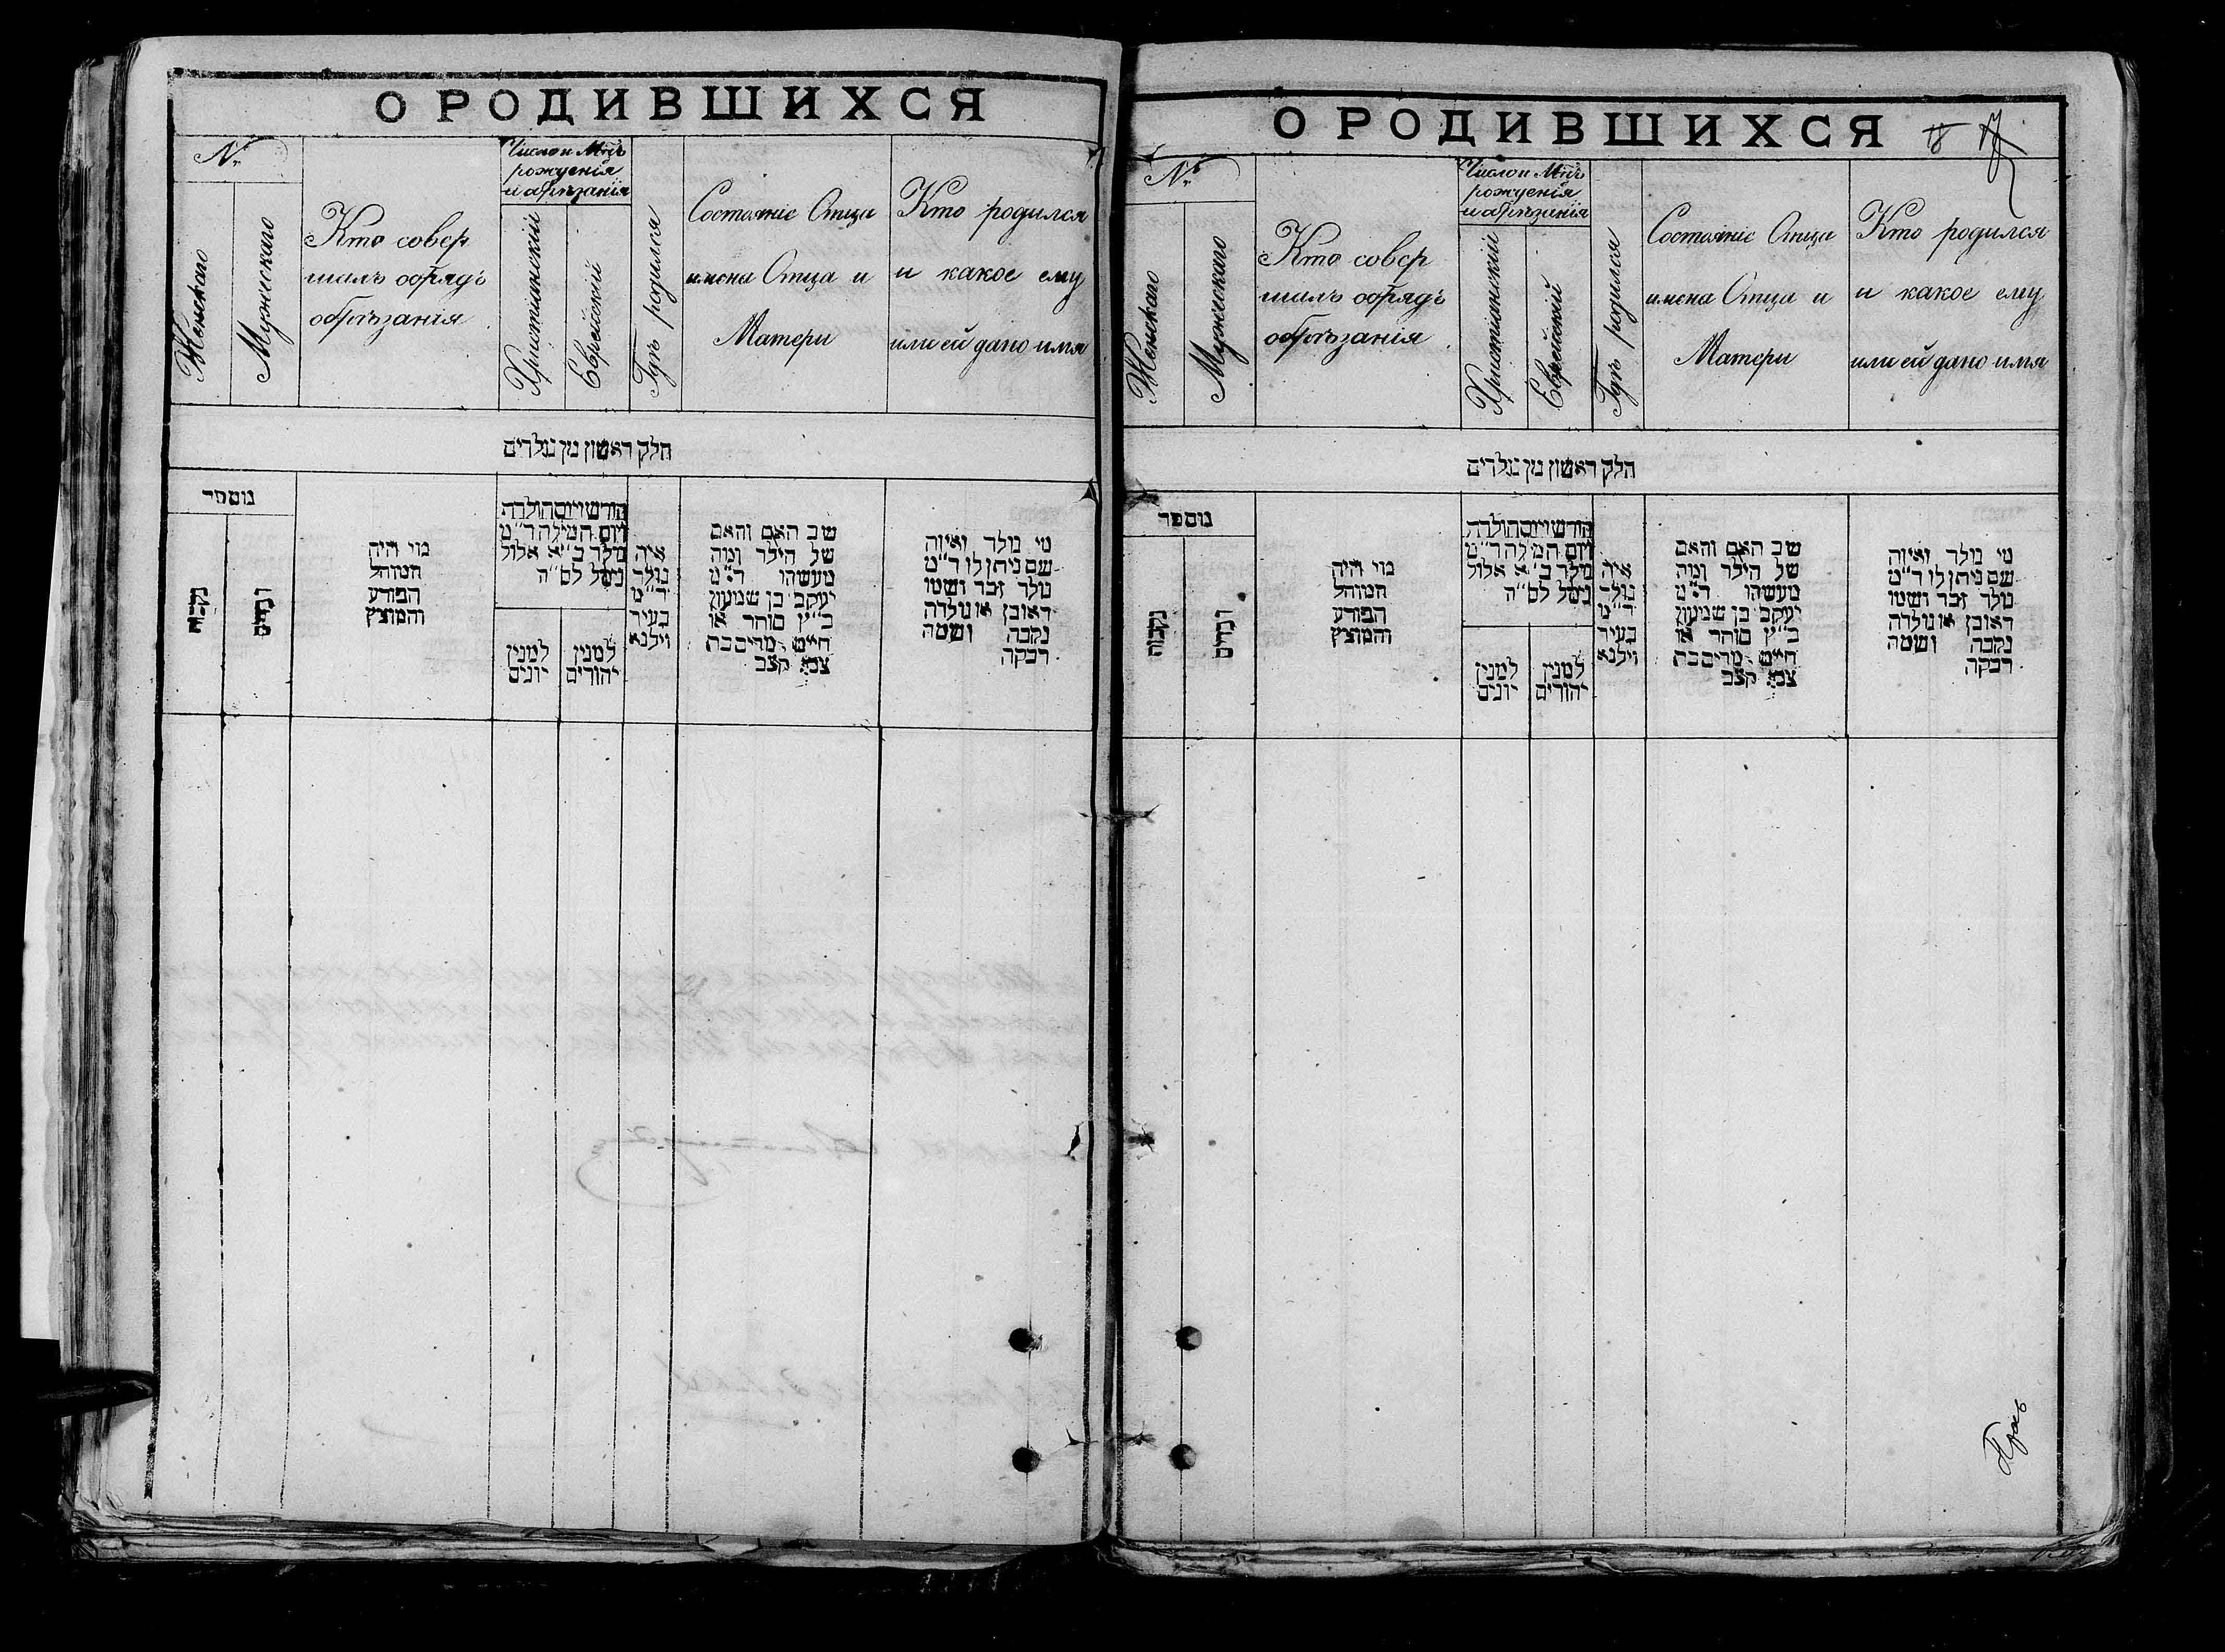 О РОДИВШИХСЯ
№
Женскаго
Мужескаго
Кто совер
шалъ обрядъ
обрѣзанія
Число и Мѣць
рожденія
и обрѣзанія
Христіанскій
Еврейскій
Гдѣ родился
Состояніе Отца
имена Отца и
Матери
Кто родился
и какое ему
или ей дано имя
חלק ראשון מן נולדים
מספר
נקבות
זכרים
מי היה
המוהל
הפורע
והמוצץ
חודש ויום הולדת
ויום המילה ד״מ
מילד ב״א אלול
נימל לס״ה
למנין
יונים
למנין
יהודים
איה
נולד
ד״מ
בעיר
ווילנא
שב האם והאם
של הילד ומה
מעשהו ד״מ
יעקב בן שמעון
כ״ץ סוחר או
חייט מרים בת
צבי קצב
מי נולד ואיזה
שם ניתן לו ד״מ
נולד זכר ושמו
ראובן או נולדה
נקבה ושמה
רבקה
О РОДИВШИХСЯ
18 17
№
Женскаго
Мужескаго
Кто совер
шалъ обрядъ
обрѣзанія
Число и Мѣць
рожденія
и обрѣзанія
Христіанскій
Еврейскій
Гдѣ родился
Состояніе Отца
имена Отца и
Матери
Кто родился
и какое ему
или ей дано имя
חלק ראשון מן נולדים
מספר
נקבות
זכרים
מי היה
המוהל
הפורע
והמוצץ
חודש ויום הולדת
ויום המילה ד״מ
מילד ב״א אלול
נימל לס״ה
למנין
יונים
למנין
יהודים
איה
נולד
ד״מ
בעיר
ווילנא
שב האם והאם
של הילד ומה
מעשהו ד״מ
יעקב בן שמעון
כ״ץ סוחר או
חייט מרים בת
צבי קצב
מי נולד ואיזה
שם ניתן לו ד״מ
נולד זכר ושמו
ראובן או נולדה
נקבה ושמה
רבקה